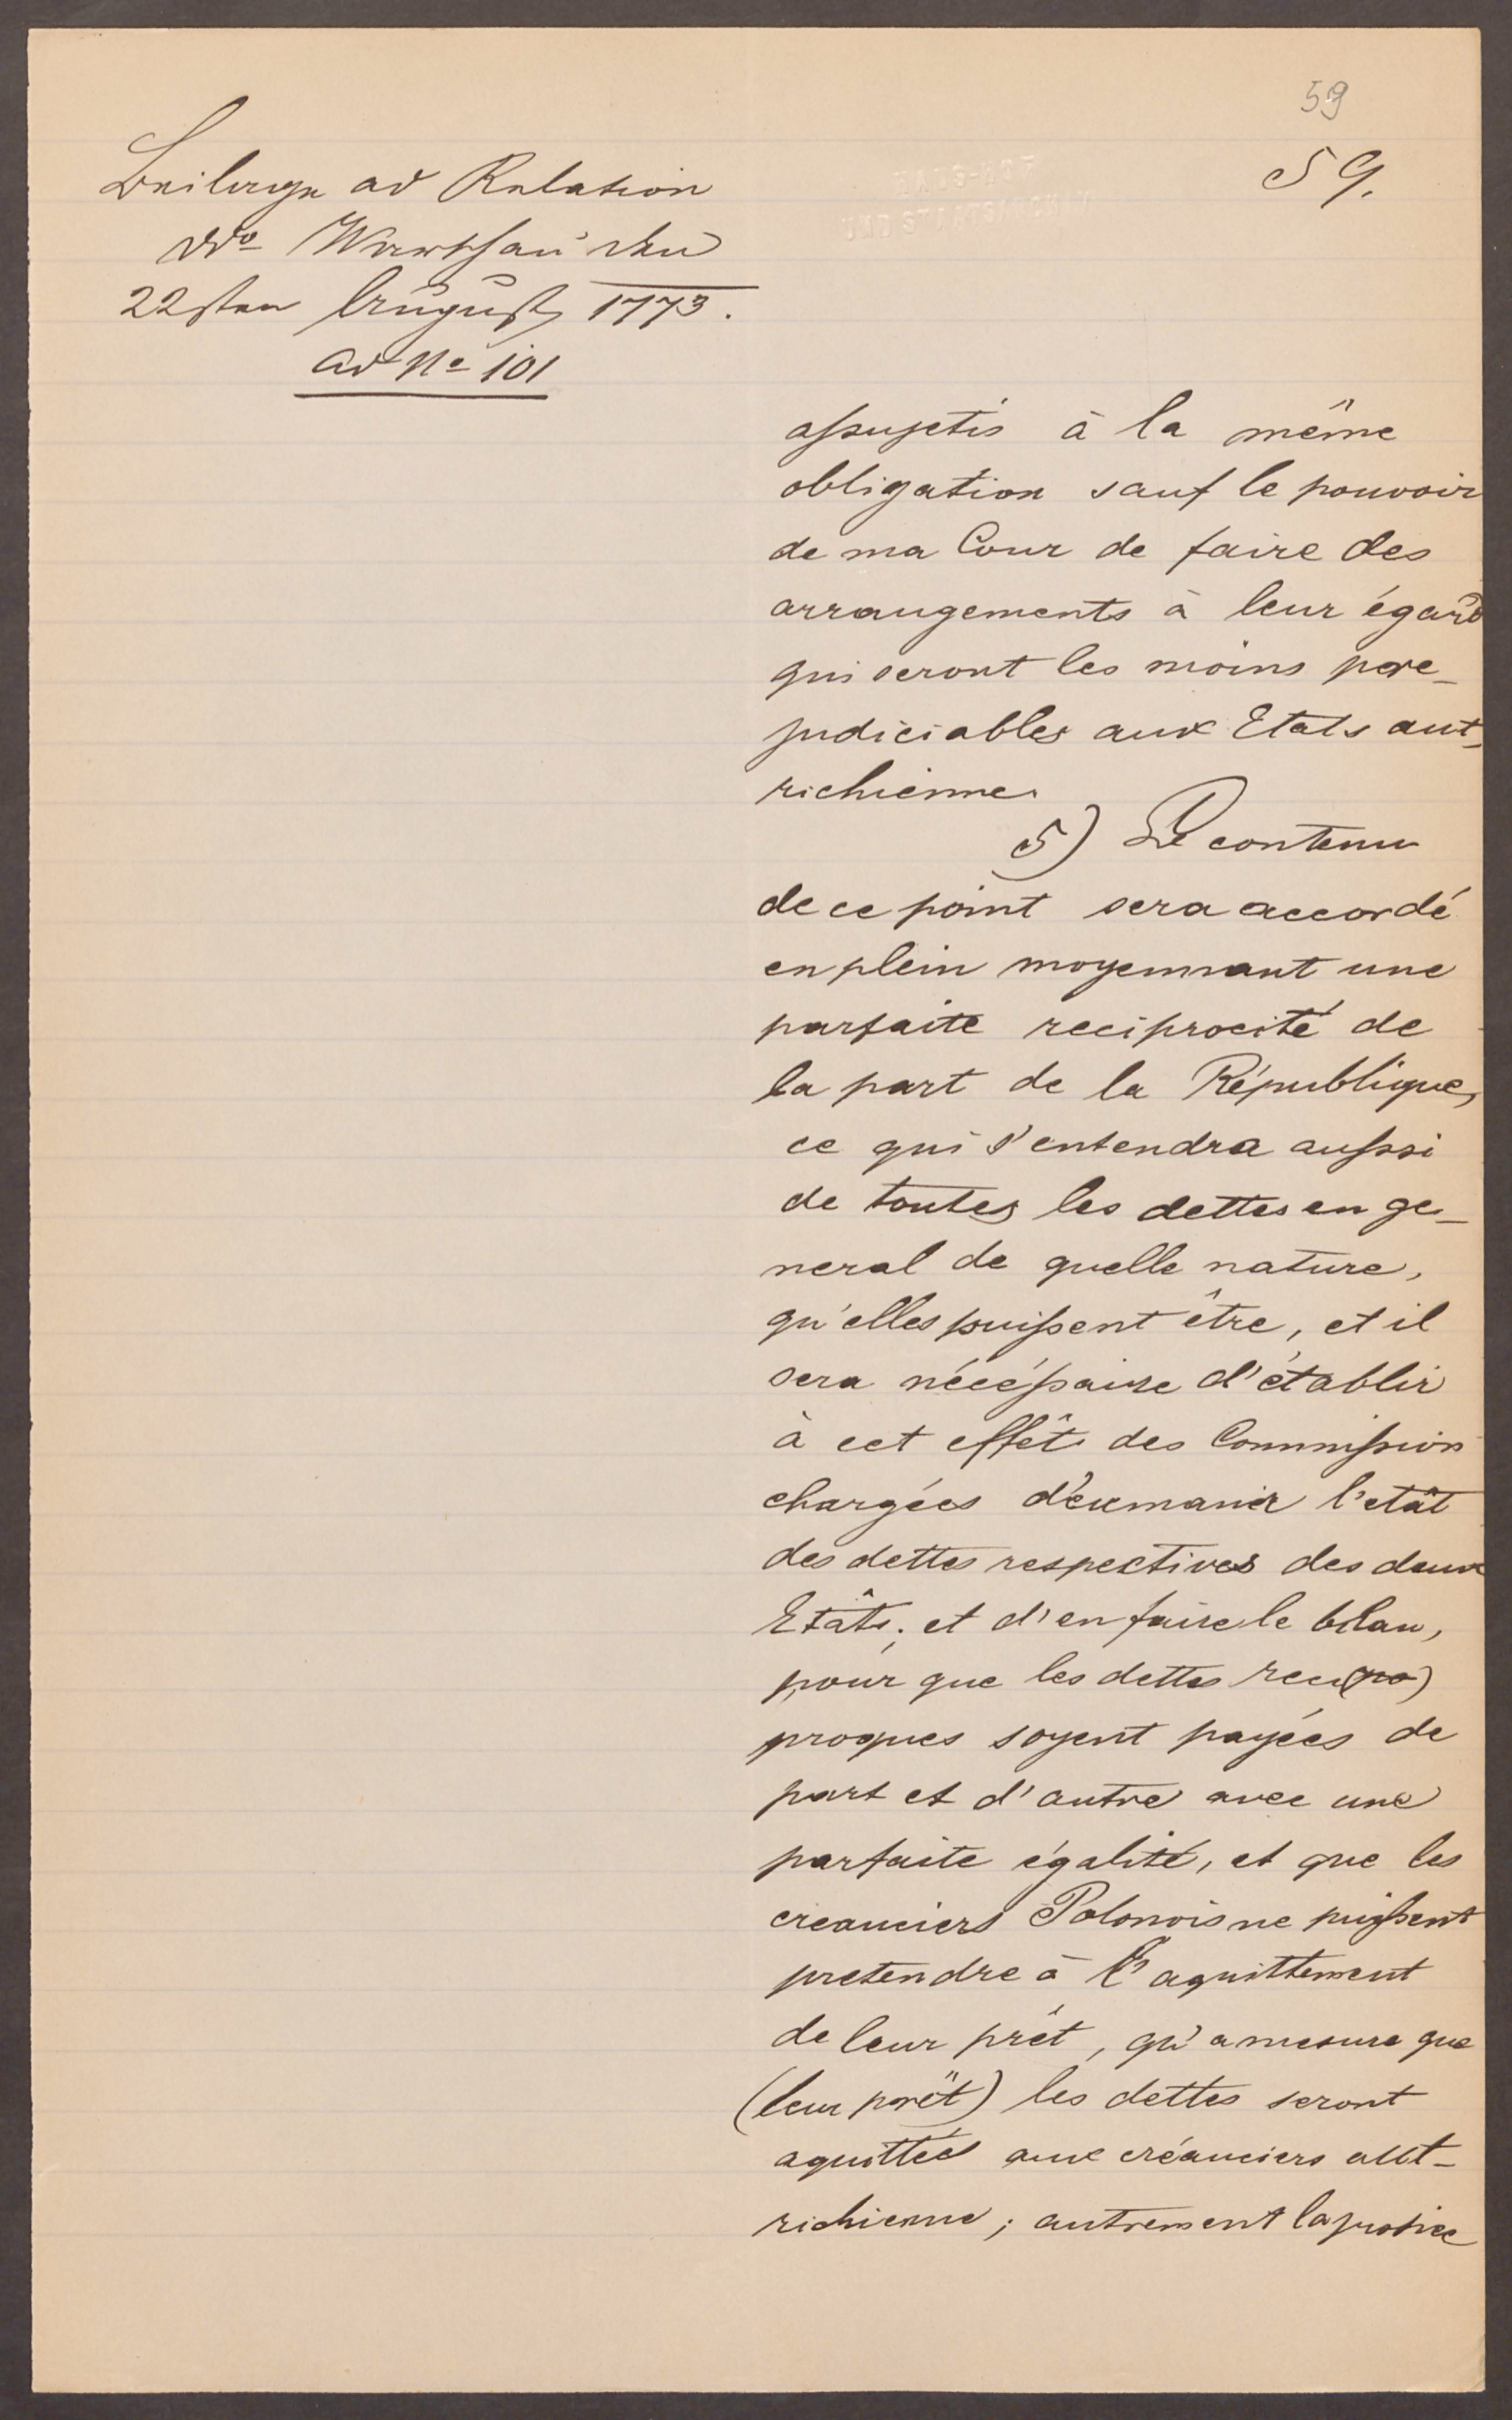 59
59.
Beilage ad Relation
ddo Warschau den
22sten August 1773.
ad No 101
assujetis à la même
obligation sauf le pouvoir
de ma Cour de faire des
arrangements à leur égard
qui seront les moins pre-
judiciables aux Etats aut-
richienne.
5) Le contenu
de ce point sera accordé
en plein moyennant une
parfaite reciprocité de
la part de la République,
ce qui s'entendra aussi
de toutes les dettes en ge-
neral de quelle nature,
qu'elles puissent être, et il
sera nécéssaire d'établir
à cet effêt des Commission
chargées d'exmanir l'etât
des dettes respectives des deux
Etâts, et d'en faire le bilan,
pour que les dettes reci(pro)
proques soyent payées de
part et d'autre avec une
parfaite égalité, et que les
creanciers Polonois ne puissent
pretendre à l'aquittement
de leur prêt, qu'a mesure que
(leur prêt) les dettes seront
aquittées aux créanciers aut-
richienne; autrement la justice